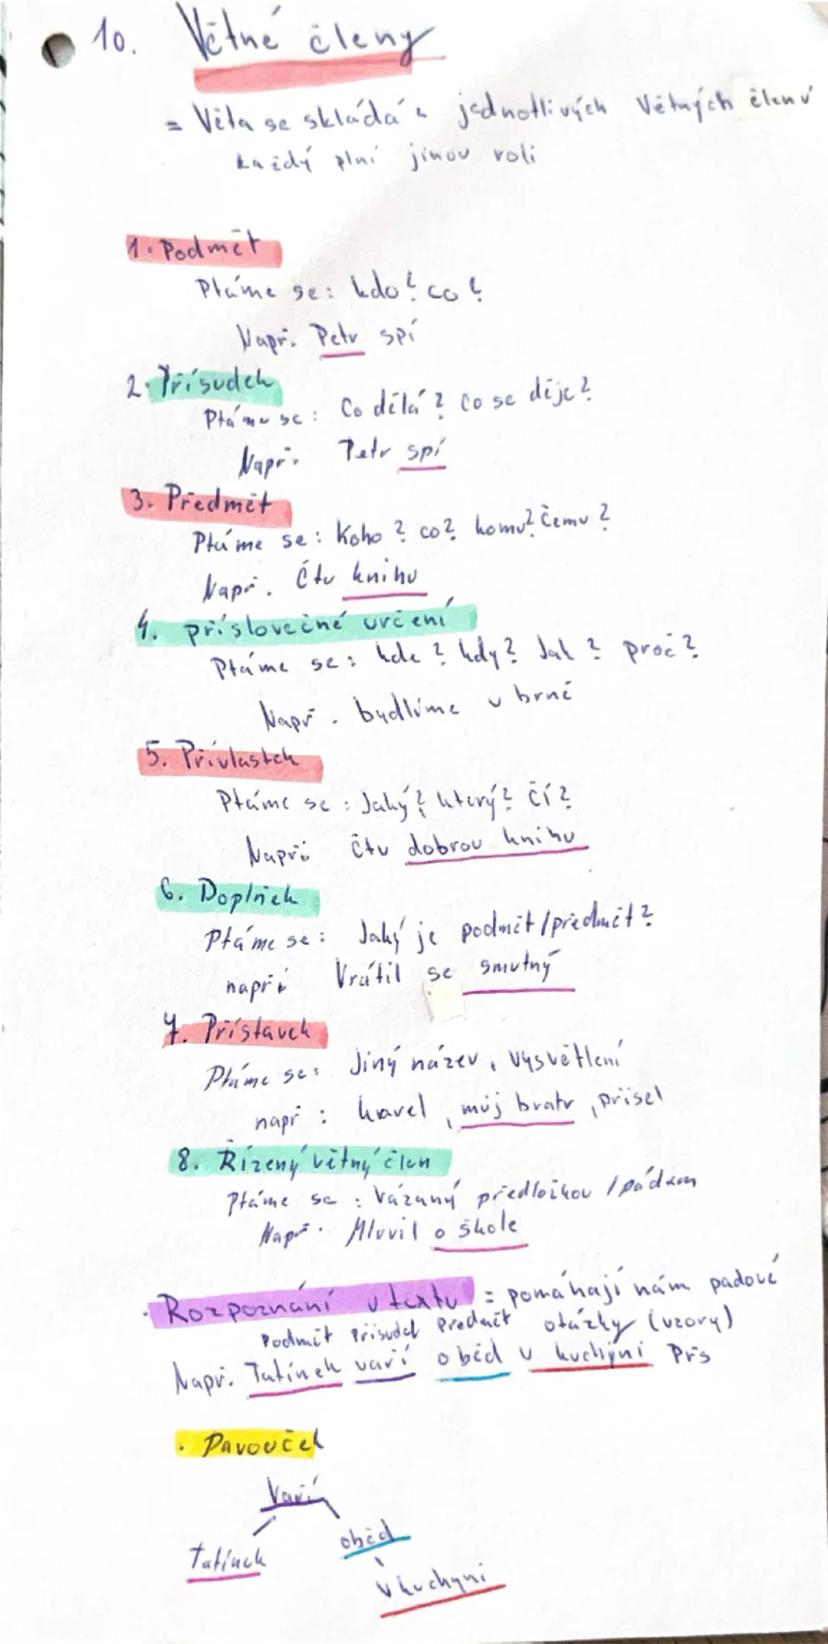 10. Větné členy
= Věta se skládá z jednotlivých větných členů
každý plní jinou roli
1. Podmět
Ptáme se: kdo? co?
Např. Petr spí
2. Přísudek
Ptáme se: Co dělá? Co se děje?
Např. Petr spí
3. Předmět
Ptáme se: Koho? co? komu? Čemu?
Např. Čtu knihu
4. příslovečné určení
Ptáme se: kde? kdy? Jak? proč?
Např. bydlíme v brně
5. Přívlastek
Ptáme se: Jaký? který? Čí?
Např: čtu dobrou knihu
6. Doplněk
Ptáme se: Jaký je podmět/předmět?
např: Vrátil se smutný
7. Přístavek
Ptáme se: Jiný název, vysvětlení
např: karel, můj bratr, přišel
8. Řízený větný člen
Ptáme se: Vázaný předložkou/pádem
Např. Mluvil o škole
• Rozpoznání v textu = pomáhají nám pádové
Podmět Přísudek Předmět otázky (vzory)
Např. Tatínek vaří oběd v kuchyni Přs
• Pavouček
Vaří
Tatínek oběd
v kuchyni